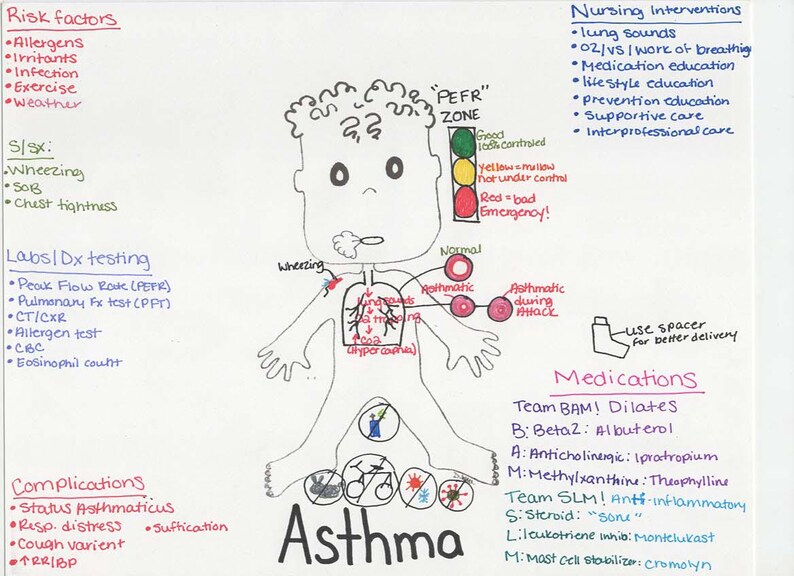 Risk factors
• Allergens
• Irritants
• Infection
• Exercise
• Weather
S/sx:
• Wheezing
• SOB
• Chest tightness
Labs/Dx testing
• Peak Flow Rate (PEFR)
• Pulmonary Fx test (PFT)
• CT/CXR
• Allergen test
• CBC
• Eosinophil count
Complications
• Status Asthmaticus
• Resp. distress • Suffication
• Cough varient
• ↑RR/BP
"PEFR"
ZONE
Good
100% controled
Yellow = mellow
not under control
Red = bad
Emergency!
Wheezing
Normal
Asthmatic
Asthmatic
during
Attack
↓
lung sounds
↓
O2 trapping
↓
↑CO2
(Hypercapnia)
Asthma
Nursing Interventions
• lung sounds
• O2/VS/Work of breathing
• Medication education
• lifestyle education
• prevention education
• Supportive care
• Interprofessional care
use spacer
for better delivery
Medications
Team BAM! Dilates
B: Beta2: Albuterol
A: Anticholinergic: Ipratropium
M: Methylxanthine: Theophylline
Team SLM! Anti-inflammatory
S: Steroid: "Sone"
L: leukotriene inhib: Montelukast
M: Mast Cell Stabilizer: Cromolyn